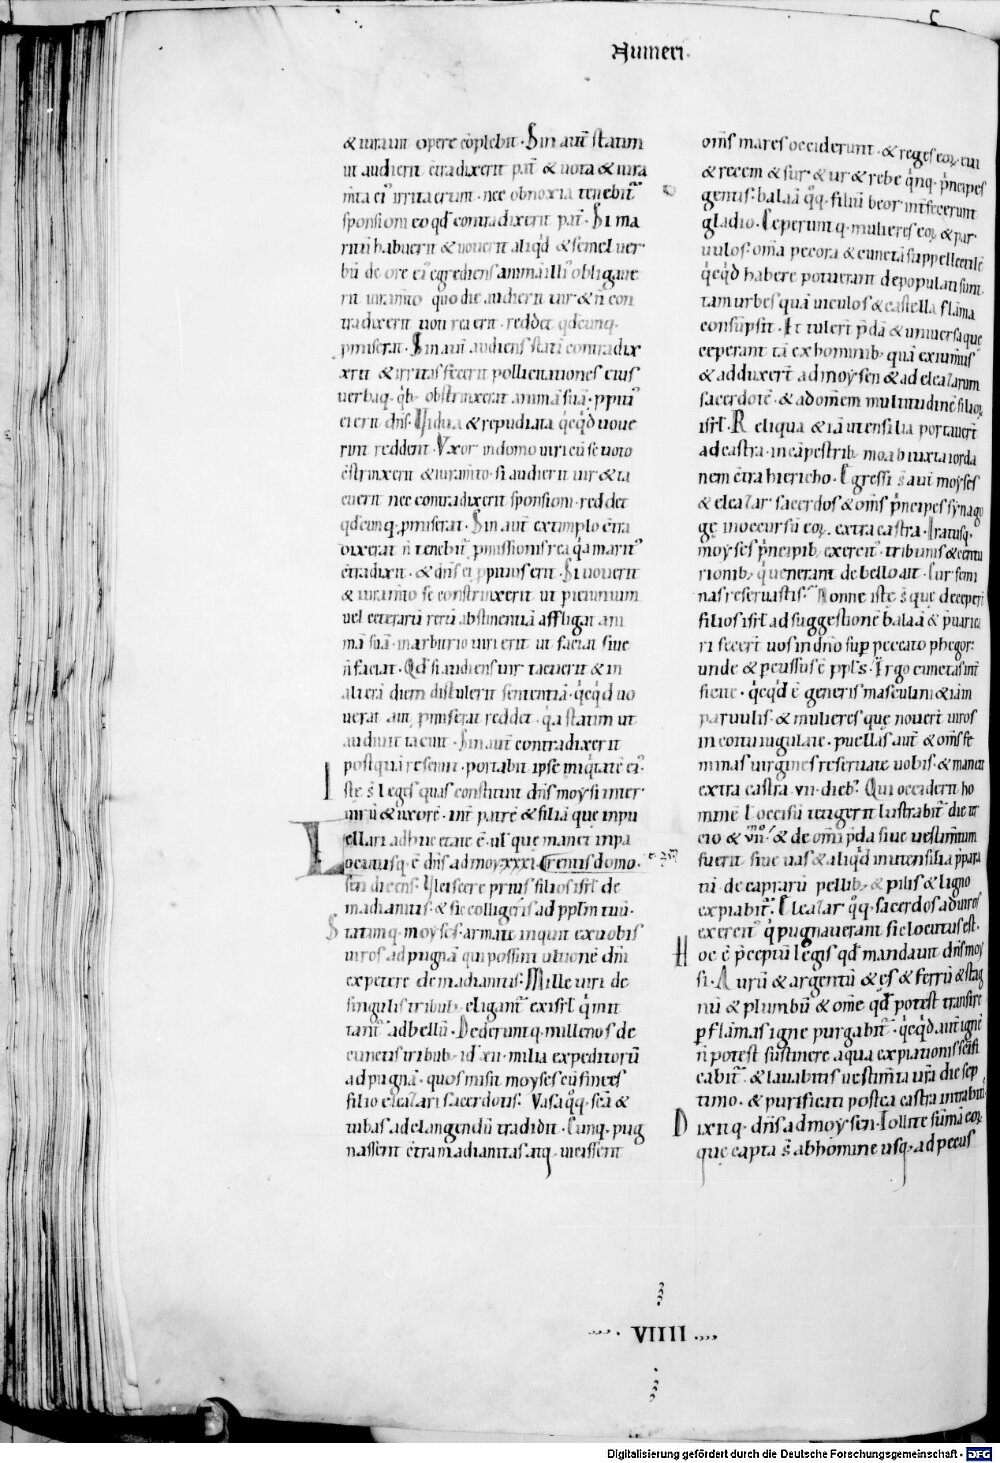 Numeri.
& iurauit opere cōplebit. Sin aut̄ statim
ut audierit c̄tradixerit pat̄ & uota & iura
m̄ta ei᾽ irrita erunt. nec obnoxia tenebit᷑
sponsioni eo qđ contradixerit pat̄. Si ma
ritū habuerit & uouerit aliqđ & semel uer
bū de ore ei᾽ egrediens animā illi᾽ obligaue
rit iuram̄to quo die audierit uir & n̄ con
tradixerit uoti rea erit. reddet qđcunq.
p̄miserat. Sin aut̄ audiens stati contradix
xerit & irritas fecerit pollicitationes eius
uerbaq. qb. obstrinxerat animā suā. ppiti᾽
ei erit dn̄s. Vidua & repudiata qcqđ uoue
rint reddent. Vxor in domo uiri cū se uoto
c̄strinxerit & iuram̄to. si audierit uir & ta
cuerit nec contradixerit sponsioni. reddet
qđcunq. p̄miserat. Sin aut̄ extimplo c̄tra
dixerat n̄ tenebit᷑ p̄missionis rea qa marit᾽
c̄tradixit. & dn̄s ei ppitius erit. Si uouerit
& iuram̄to se constrinxerit ut p ieiunium
uel ceterarū rerū abstinentiā affligat ani
mā suā. in arbitrio uiri erit ut faciat siue
n̄ faciat. Qđ si audiens uir tacuerit & in
alterā diem distulerit sententiā. qcqđ uo
uerat aut p̄miserat reddet. qa statim ut
audiuit tacuit. Sin aut̄ contradixerit
postquā resciuit. portabit ipse iniqtatē ei᾽.
Iste s̄ leges quas constituit dn̄s moysi inter
uirū & uxorē. int̄ patrē & filiā que in pu
ellari adhuc etate ē. ul᾽ que manet in pa
rentis domo.
Locutusq. ē dn̄s ad moy xxxi.
sen dicens. Vlciscere prius filios isrl̄ de
madianitis. & sic colligeris ad pplm tuū.
Statimq. moyses. armate inquit ex uobis
uiros ad pugnā qui possint ultionē dn̄i
expetere de madianitis. Mille uiri de
singulis tribub. eligant᷑ ex isrl̄ q mit
tant᷑ ad bellū. Dederuntq. millenos de
cunctis tribub. id xii. milia expeditorū
ad pugnā. quos misit moyses cū finees
filio eleazari sacerdotis. Vasa qq. sc̄a &
tubas ad clangendū tradidit. Cunq. pug
nassent c̄tra madianitas. atq. uicissent
om̄s mares occiderunt. & reges eoꝝ. eui
& recem & sur & ur & rebe qnq. p̄ncipes
gentis. balaā qq. filiū beor int̄fecerunt
gladio. Ceperuntq. mulieres eoꝝ & par
uulos. om̄a pecora & cunctā suppellectilē
qcqđ habere potuerant depopulati sunt
tam urbes quā uiculos & castella flāma
consūpsit. Et tulert̄ p̄dā & uniuersa que
ceperant tā ex hominib. quā ex iumtis
& adduxert̄ ad moysen & ad eleazarum
sacerdotē. & ad omēm multitudinē filioꝝ
isrl̄. Reliqua & iā utensilia portauert̄
ad castra. in cāpestrib. moab iuxta iorda
nem c̄tra hiericho. Egressi s̄ aut̄ moyses
& eleazar sacerdos & om̄s p̄ncipes synago
gę in occursū eoꝝ. extra castra. Iratusq.
moyses p̄ncipib. exercit᾽. tribunis & centu
rionib. q uenerant de bello ait. Cur femi
nas reseruastis. Nonne iste s̄ que deceperī
filios isrl̄ ad suggestionē balaā & p̄uarica
ri fecert̄ uos in dn̄o sup peccato phegor.
unde & pcussus ē ppl̄s. Ergo cunctas int̄
ficite. qcqđ ē generis masculini & iam
paruulis. & mulieres que nouert̄ uiros
in coitu iugulate. puellas aut̄ & om̄s fe
minas uirgines reseruate uobis. & manete
extra castra vii. dieb. Qui occiderit ho
minē ł occisū tetigerit lustrabit᷑ die ter
cio & viimo. & de om̄i p̄da siue uestim̄tum
fuerit siue uas & aliqđ in utensilia ppara
tū de caprarū pellib. & pilis & ligno
expiabit᷑. Eleazar qq. sacerdos ad uiros
exercit᾽ q pugnauerant sic locutus est.
Hoc ē p̄ceptū legis qđ mandauit dn̄s moy
si. Aurū & argentū & ęs & ferrū & stag
nū & plumbū & ome qđ potest transire
p flāmas igne purgabit᷑. qcqđ aut̄ ignē
n̄ potest sustinere aqua expiationis scīfi
cabit᷑. & lauabitis uestim̄ta urā die sep
timo. & purificati postea castra intrabitis
Dixitq. dn̄s ad moysen. Tollite sūmā eoꝝ
que capta s̄ ab homine usq. ad pecus
VIIII
Digitalisierung gefördert durch die Deutsche Forschungsgemeinschaft - DFG